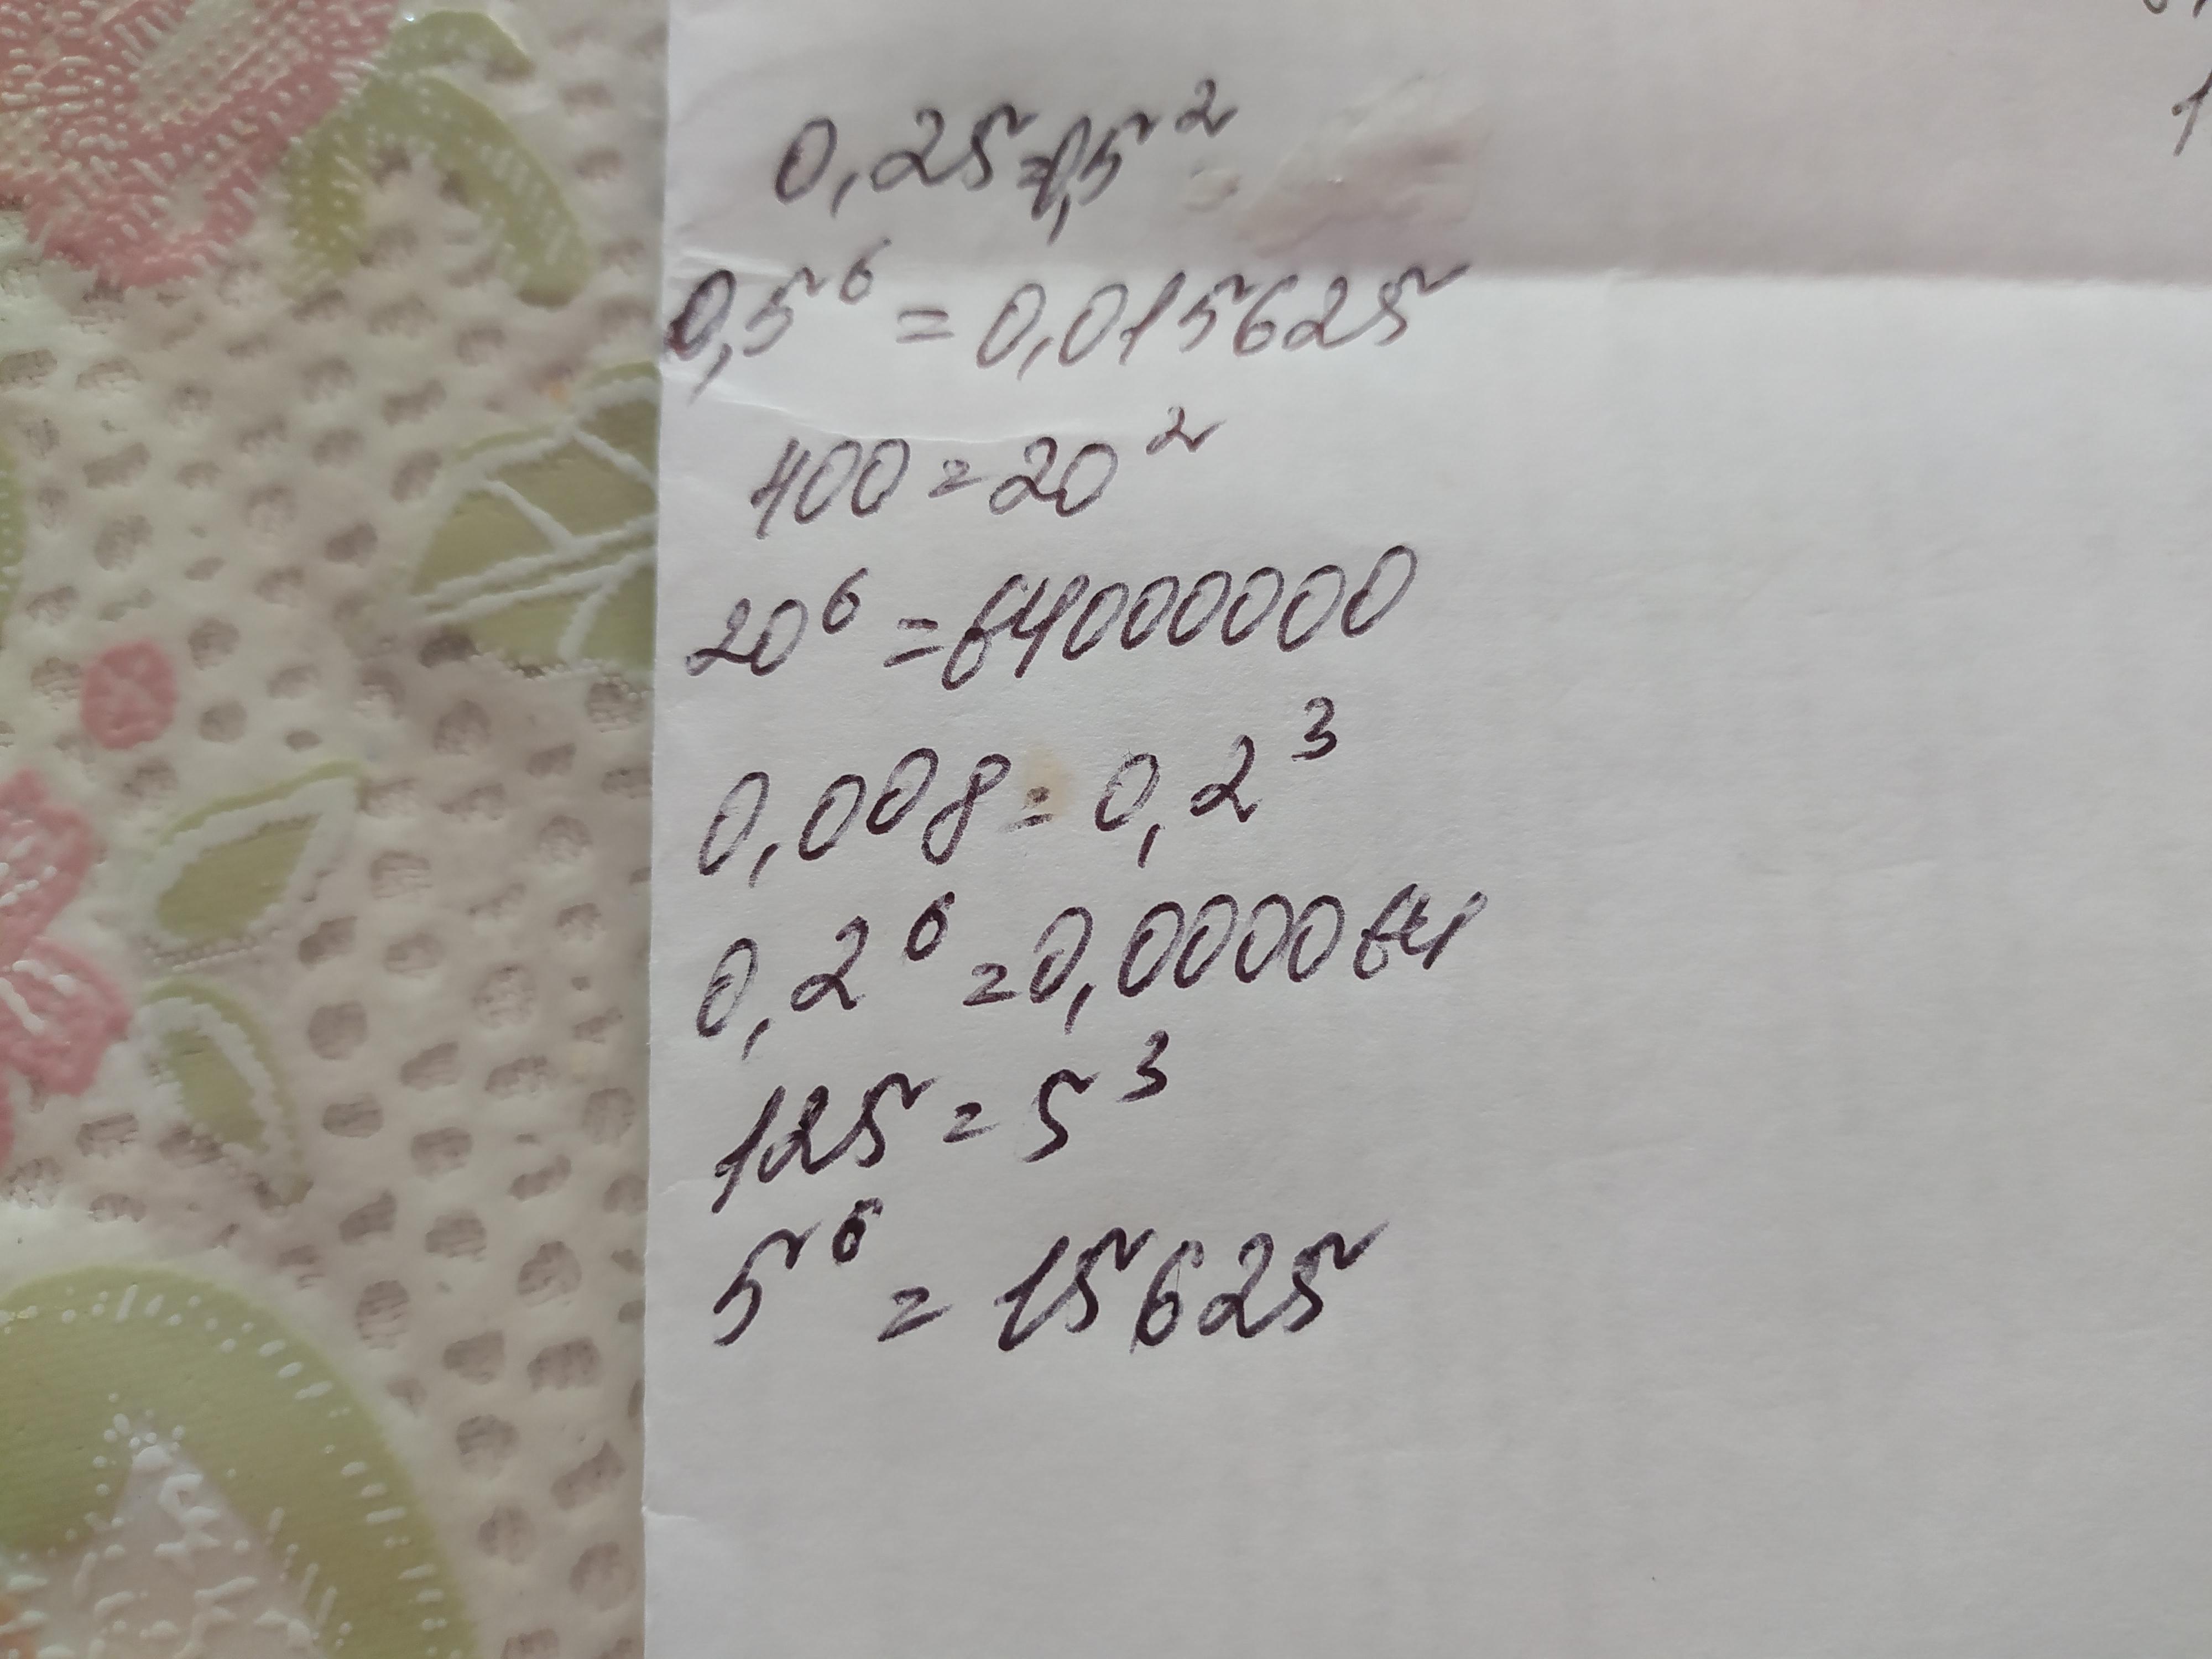 0,25=0,5²
0,5⁶=0,015625
400=20²
20⁶=64000000
0,008=0,2³
0,2⁶=0,000064
125=5³
5⁶=15625